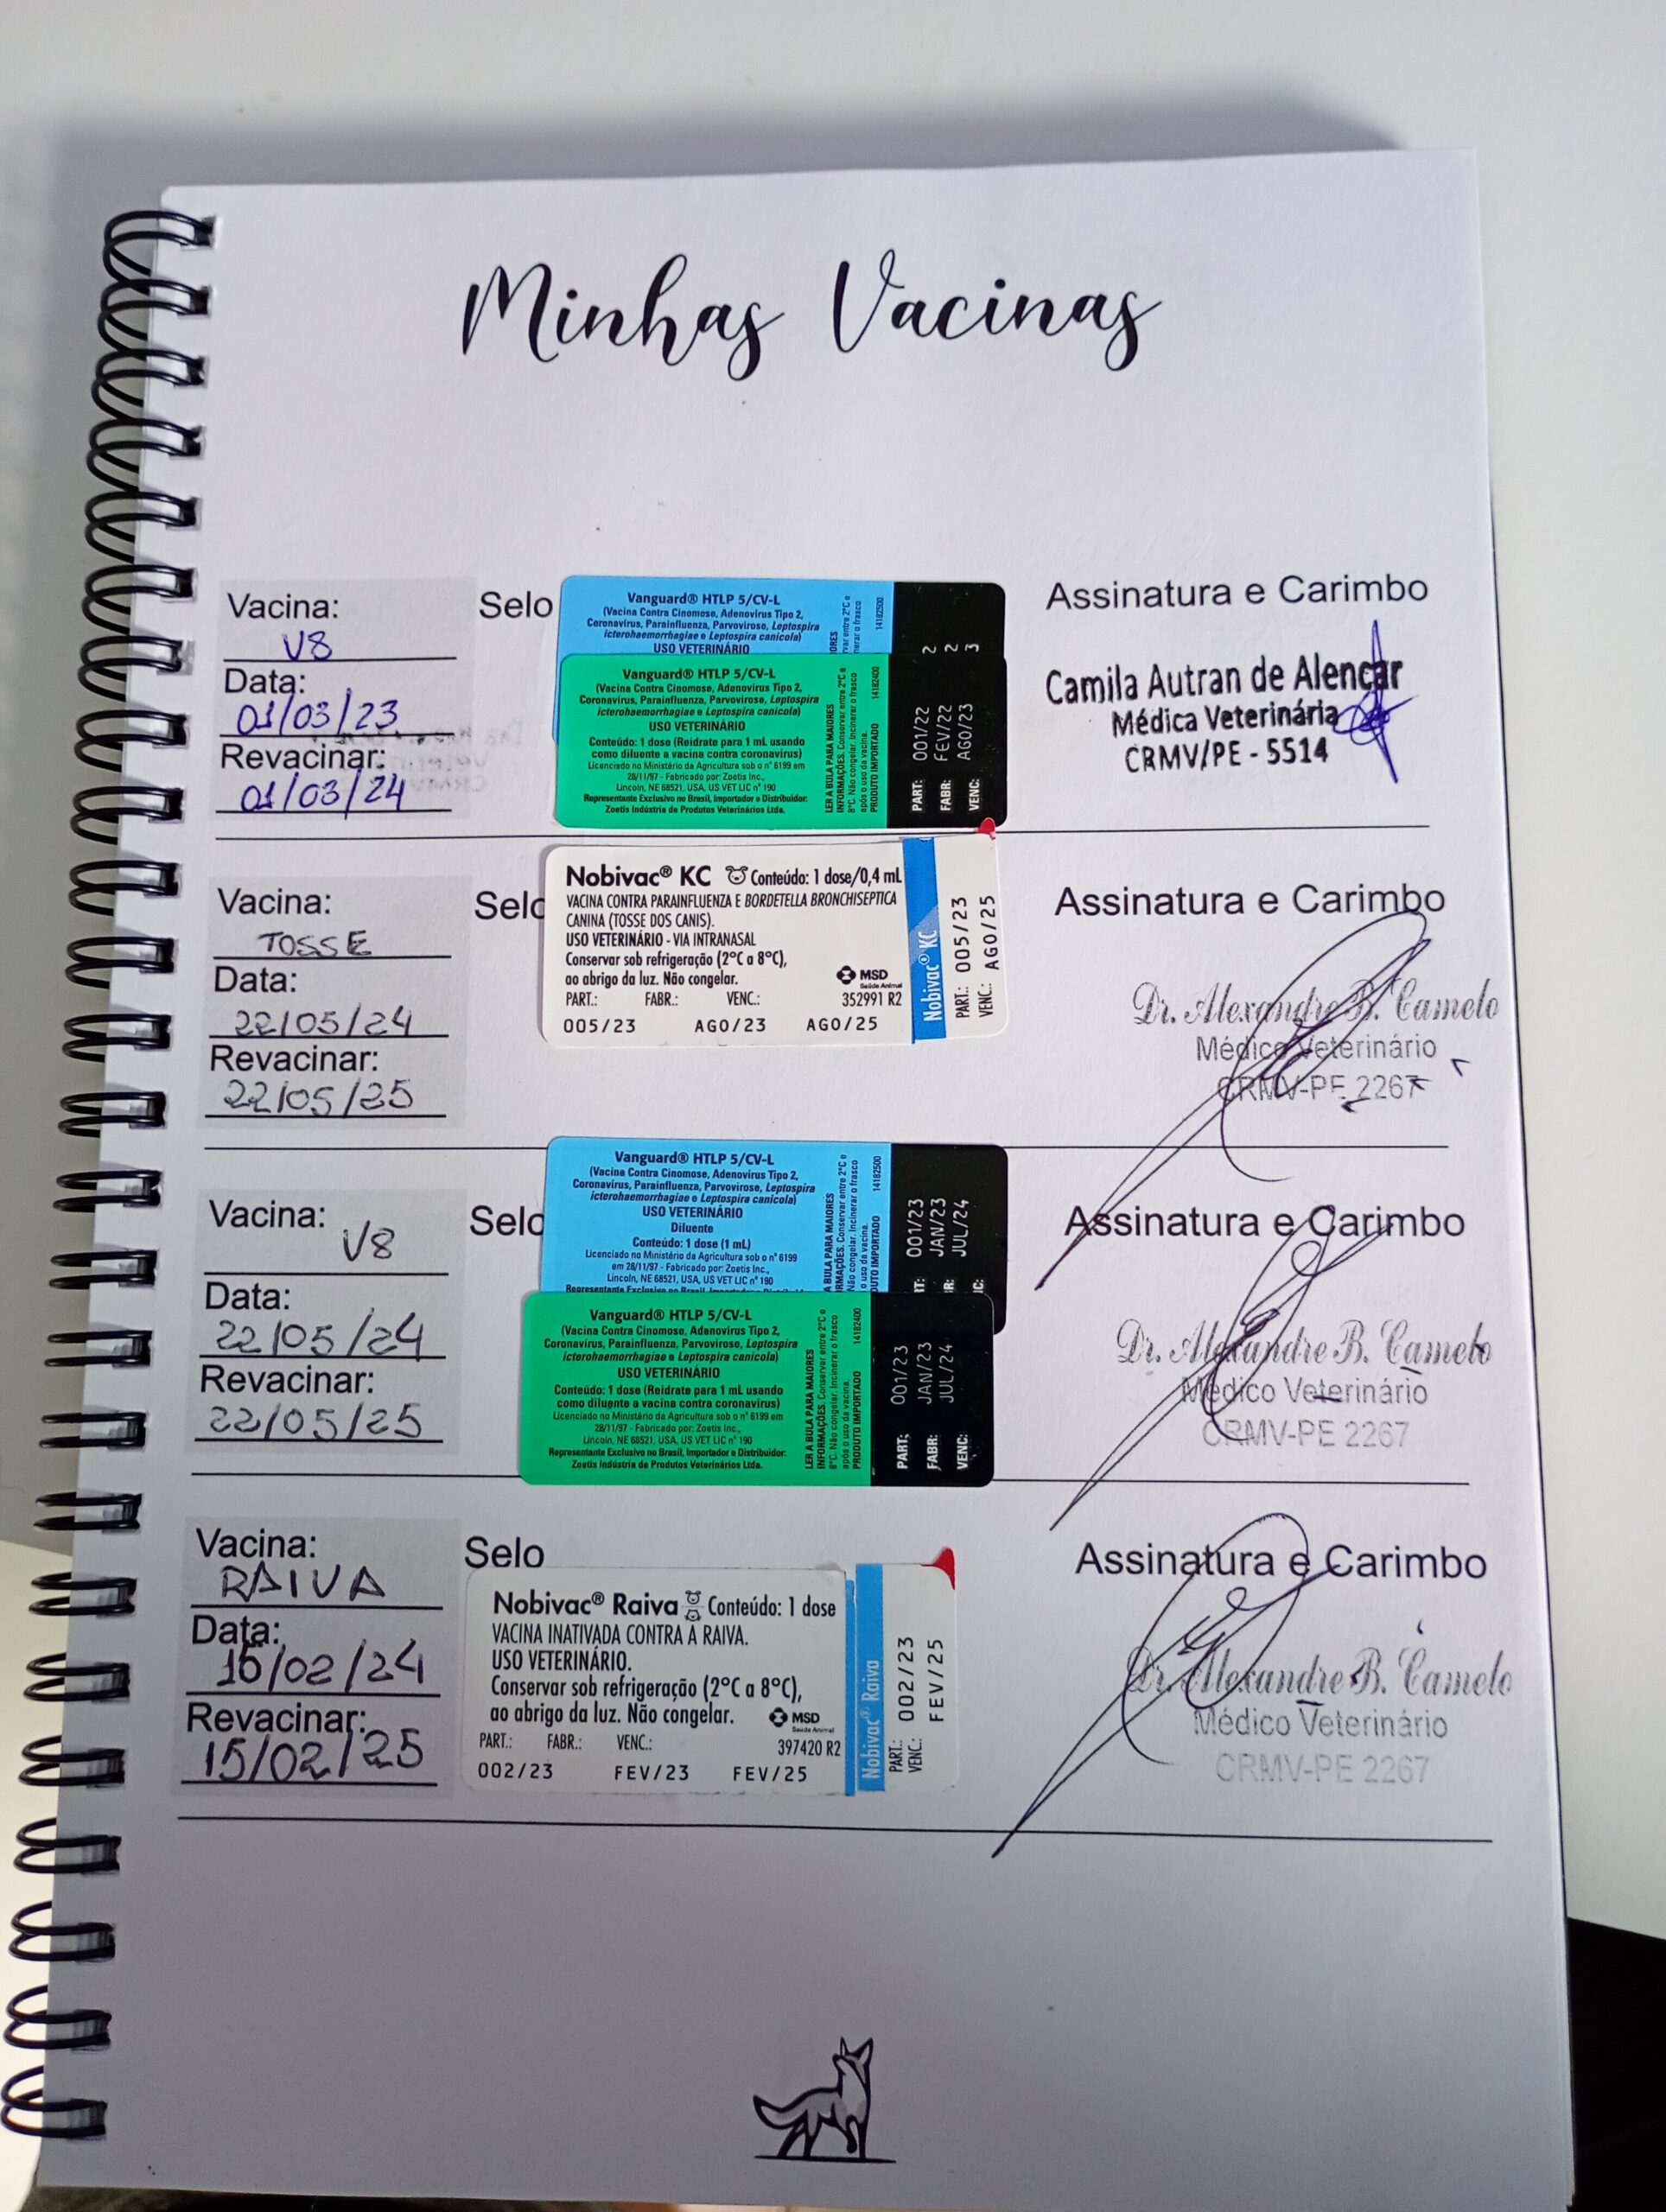 Minhas Vacinas
Vacina:
V8
Data:
01/03/23
Revacinar:
01/03/24
Selo
Vanguard® HTLP 5/CV-L
(Vacina Contra Cinomose, Adenovírus Tipo 2,
Coronavírus, Parainfluenza, Parvovirose, Leptospira
icterohaemorrhagiae e Leptospira canicola)
USO VETERINÁRIO
14182500
2
2
3
Vanguard® HTLP 5/CV-L
(Vacina Contra Cinomose, Adenovírus Tipo 2,
Coronavírus, Parainfluenza, Parvovirose, Leptospira
icterohaemorrhagiae e Leptospira canicola)
USO VETERINÁRIO
Conteúdo: 1 dose (Reidrate para 1 mL usando
como diluente a vacina contra coronavírus)
Licenciado no Ministério da Agricultura sob o n° 6199 em
28/11/97 - Fabricado por: Zoetis Inc.,
Lincoln, NE 68521, USA, US VET LIC n° 190
Representante Exclusivo no Brasil, Importador e Distribuidor:
Zoetis Indústria de Produtos Veterinários Ltda.
LER A BULA PARA MAIORES
INFORMAÇÕES. Conservar entre 2°C e
8°C. Não congelar. Incinerar o frasco
após o uso da vacina.
PRODUTO IMPORTADO 14182400
PART: 001/22
FABR: FEV/22
VENC: AGO/23
Assinatura e Carimbo
Camila Autran de Alencar
Médica Veterinária
CRMV/PE - 5514
Vacina:
TOSSE
Data:
22/05/24
Revacinar:
22/05/25
Selo
Nobivac® KC Conteúdo: 1 dose/0,4 mL
VACINA CONTRA PARAINFLUENZA E BORDETELLA BRONCHISEPTICA
CANINA (TOSSE DOS CANIS).
USO VETERINÁRIO - VIA INTRANASAL
Conservar sob refrigeração (2°C a 8°C),
ao abrigo da luz. Não congelar.
MSD
Saúde Animal
PART.: FABR.: VENC.: 352991 R2
005/23 AGO/23 AGO/25
Nobivac® KC
PART.: 005/23
VENC.: AGO/25
Assinatura e Carimbo
Dr. Alexandre B. Camelo
Médico Veterinário
CRMV-PE 2267
Vacina:
V8
Data:
22/05/24
Revacinar:
22/05/25
Selo
Vanguard® HTLP 5/CV-L
(Vacina Contra Cinomose, Adenovírus Tipo 2,
Coronavírus, Parainfluenza, Parvovirose, Leptospira
icterohaemorrhagiae e Leptospira canicola)
USO VETERINÁRIO
Diluente
Conteúdo: 1 dose (1 mL)
Licenciado no Ministério da Agricultura sob o n° 6199
em 28/11/97 - Fabricado por: Zoetis Inc.,
Lincoln, NE 68521, USA, US VET LIC n° 190
Representante Exclusivo no Brasil, Importador e Distribuidor:
A BULA PARA MAIORES
RMAÇÕES. Conservar entre 2°C e
Não congelar. Incinerar o frasco
o uso da vacina.
DUTO IMPORTADO 14182500
RT: 001/23
R: JAN/23
C: JUL/24
Vanguard® HTLP 5/CV-L
(Vacina Contra Cinomose, Adenovírus Tipo 2,
Coronavírus, Parainfluenza, Parvovirose, Leptospira
icterohaemorrhagiae e Leptospira canicola)
USO VETERINÁRIO
Conteúdo: 1 dose (Reidrate para 1 mL usando
como diluente a vacina contra coronavírus)
Licenciado no Ministério da Agricultura sob o n° 6199 em
28/11/97 - Fabricado por: Zoetis Inc.,
Lincoln, NE 68521, USA, US VET LIC n° 190
Representante Exclusivo no Brasil, Importador e Distribuidor:
Zoetis Indústria de Produtos Veterinários Ltda.
LER A BULA PARA MAIORES
INFORMAÇÕES. Conservar entre 2°C e
8°C. Não congelar. Incinerar o frasco
após o uso da vacina.
PRODUTO IMPORTADO 14182400
PART: 001/23
FABR: JAN/23
VENC: JUL/24
Assinatura e Carimbo
Dr. Alexandre B. Camelo
Médico Veterinário
CRMV-PE 2267
Vacina:
RAIVA
Data:
15/02/24
Revacinar:
15/02/25
Selo
Nobivac® Raiva Conteúdo: 1 dose
VACINA INATIVADA CONTRA A RAIVA.
USO VETERINÁRIO.
Conservar sob refrigeração (2°C a 8°C),
ao abrigo da luz. Não congelar.
MSD
Saúde Animal
PART.: FABR.: VENC.: 397420 R2
002/23 FEV/23 FEV/25
Nobivac® Raiva
PART.: 002/23
VENC.: FEV/25
Assinatura e Carimbo
Dr. Alexandre B. Camelo
Médico Veterinário
CRMV-PE 2267